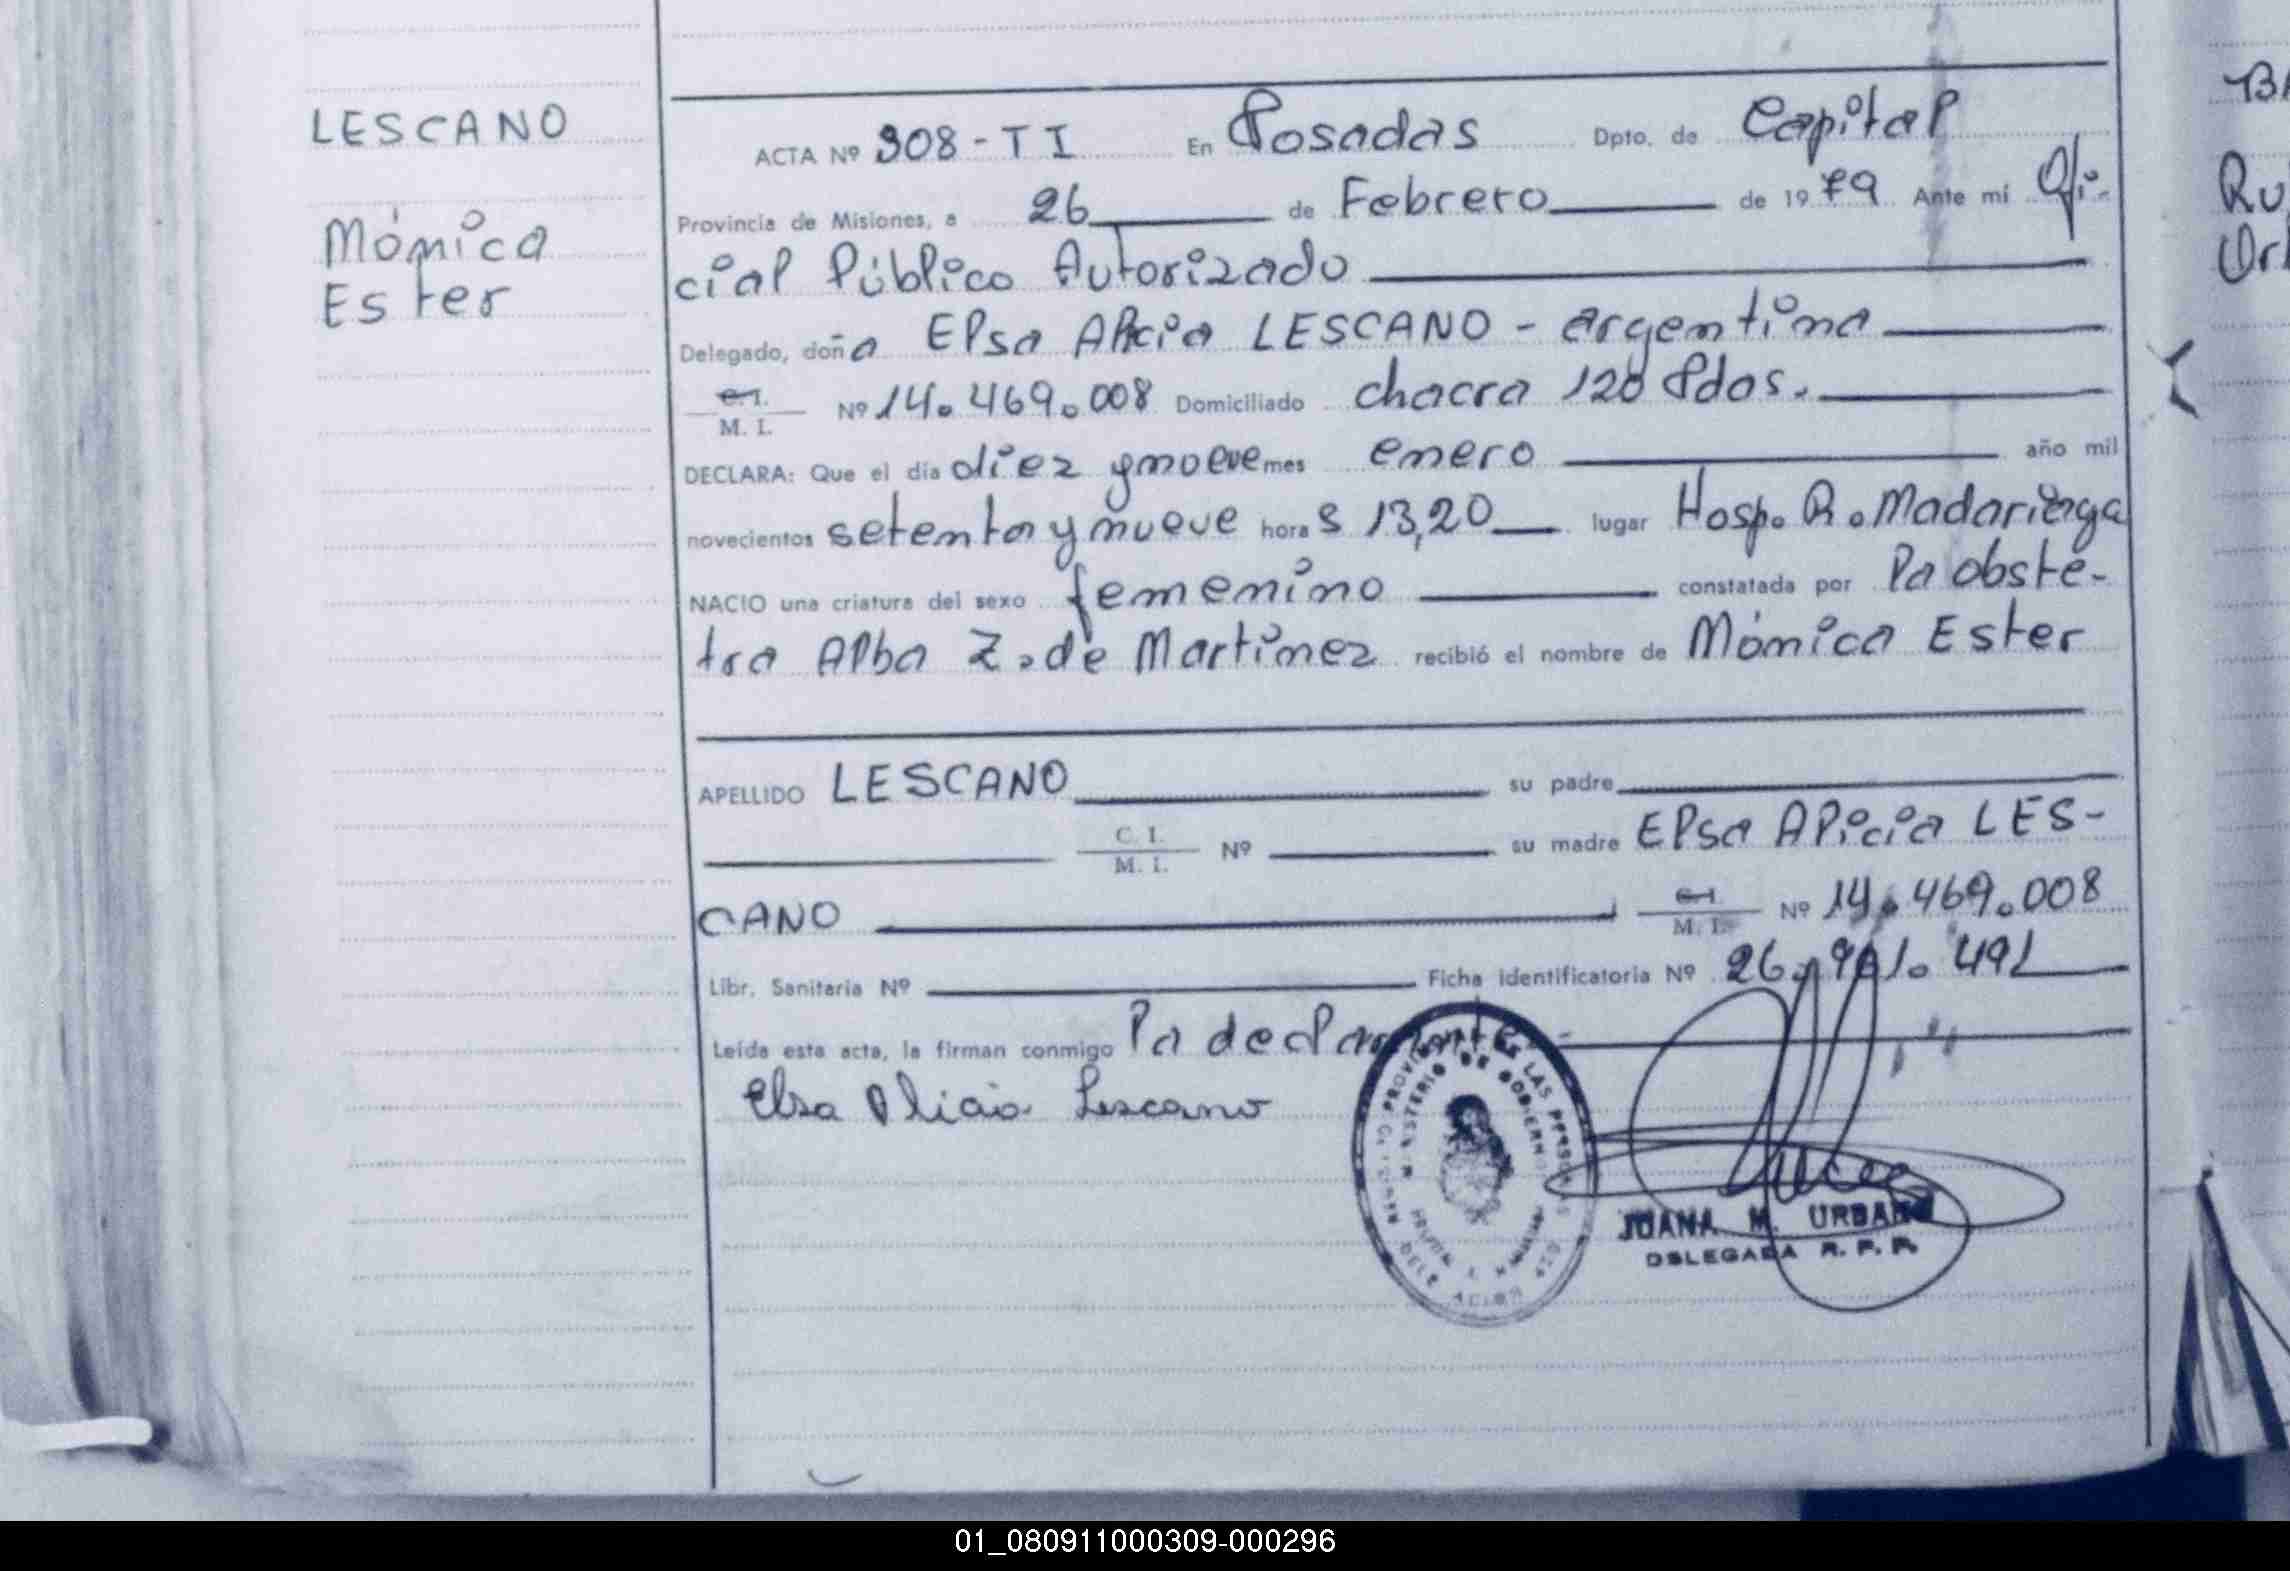 LESCANO
Mónica
Ester
ACTA Nº 308-TI En Posadas Dpto. de Capital
Provincia de Misiones, a 26 de Febrero de 1979 Ante mí Ofi-
cial Público Autorizado
Delegado, doña Elsa Alicia LESCANO - argentina
C.I. M. I. Nº 14.469.008 Domiciliado chacra 120 Pdas.
DECLARA: Que el día diez y nueve mes enero año mil
novecientos setenta y nueve horas 13,20 lugar Hosp. R. Madariaga
NACIO una criatura del sexo femenino constatada por la obste-
tra Alba Z. de Martinez recibió el nombre de Mónica Ester
APELLIDO LESCANO su padre
C. I. M. I. Nº su madre Elsa Alicia LES-
CANO C.I. M. I. Nº 14.469.008
Libr. Sanitaria Nº Ficha identificatoria Nº 26.901.491
Leída esta acta, la firman conmigo la declarante.-
Elsa Alicia Lescano
JUANA M. URBANO
DELEGADA R. P. P.
BA
Ru
Or
01_080911000309-000296